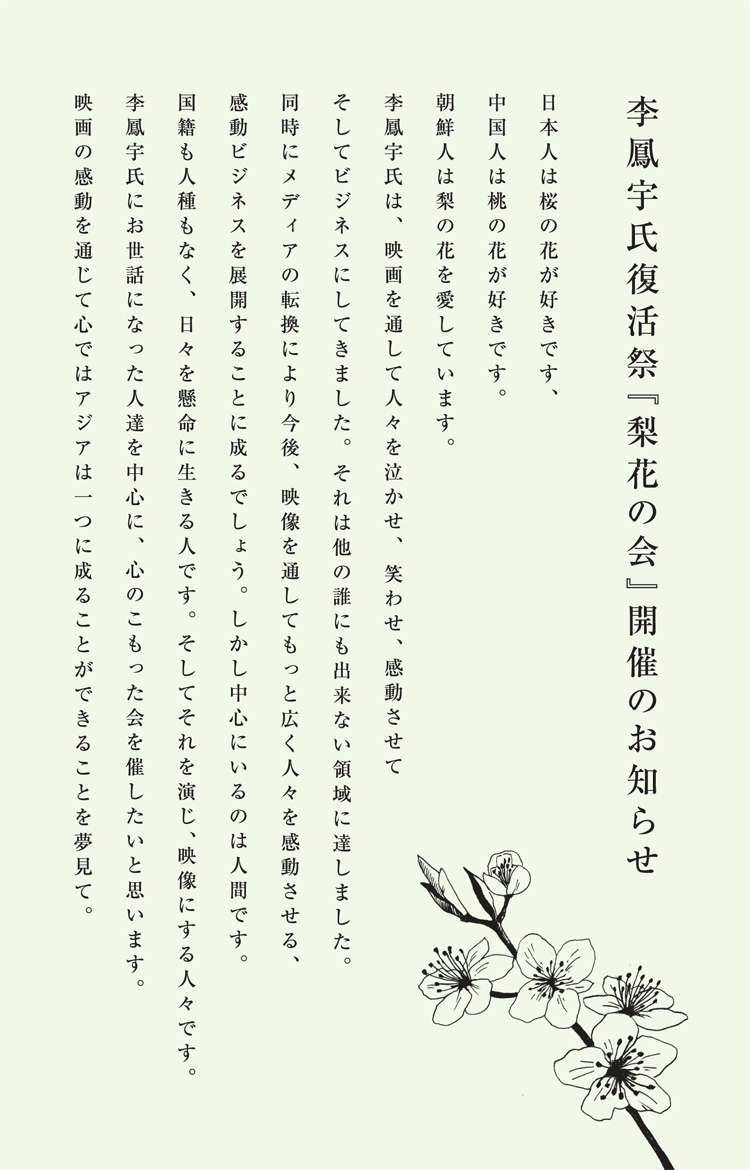 李鳳宇氏復活祭『梨花の会』開催のお知らせ
日本人は桜の花が好きです、
中国人は桃の花が好きです。
朝鮮人は梨の花を愛しています。
李鳳宇氏は、映画を通して人々を泣かせ、笑わせ、感動させて
そしてビジネスにしてきました。それは他の誰にも出来ない領域に達しました。
同時にメディアの転換により今後、映像を通してもっと広く人々を感動させる、
感動ビジネスを展開することに成るでしょう。しかし中心にいるのは人間です。
国籍も人種もなく、日々を懸命に生きる人です。そしてそれを演じ、映像にする人々です。
李鳳宇氏にお世話になった人達を中心に、心のこもった会を催したいと思います。
映画の感動を通じて心ではアジアは一つに成ることができることを夢見て。